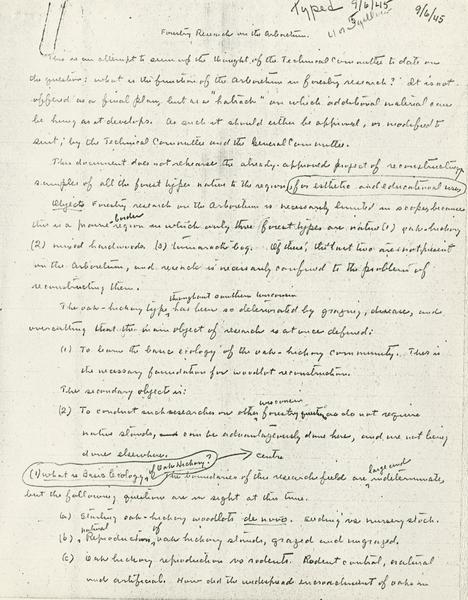 Typed 9/6/45 9/6/45
5 yellow
Forestry Research on the Arboretum.
This is an attempt to sum up the thought of the Technical Committee to date on
the question: what is the function of the Arboretum in forestry research? It is not
offered as a final plan, but as a "hatrack" on which additional material can
be hung as it develops. As such it should either be approved, or modified to
suit, by the Technical Committee and the General Committee.
This document does not rehearse the already-approved project of reconstructing
samples of all the forest types native to the region, for esthetic and educational uses
Objects Forestry research on the Arboretum is necessarily limited in scope because
this is a prairie border region in which only three forest types are native (1) oak-hickory
(2) mixed hardwoods (3) tamarack bog. Of these, the last two are not present
in the Arboretum, and research is necessarily confined to the problems of
reconstructing them.
The oak-hickory type, throughout southern Wisconsin has been so deteriorated by grazing, disease, and
overcutting that the main object of research is at once defined:
(1) To learn the basic ecology of the oak-hickory community. This is
the necessary foundation for woodlot reconstruction.
The secondary object is:
(2) To conduct such researches on other Wisconsin forestry questions as do not require
native stands, can be advantageously done here, and are not being
done elsewhere. centre
(1) What is Basic Ecology of Oak Hickory? The boundaries of this research field are large and indeterminate,
but the following questions are in sight at this time.
(a) Starting oak-hickory woodlots de novo. Seeding vs nursery stock.
(b) natural Reproduction of oak hickory stands, grazed and ungrazed.
(c) Oak hickory reproduction vs rodents. Rodent control, natural
and artificial. How did the widespread encroachment of oaks on